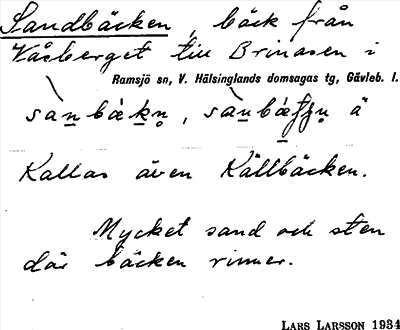 Sandbäcken, bäck från
Våsberget till Brinasen i
Ramsjö sn, V. Hälsinglands domsagas tg, Gävleb. l.
Kallas även Källbäcken.
Mycket sand och sten
där bäcken rinner.
LARS LARSSON 1934